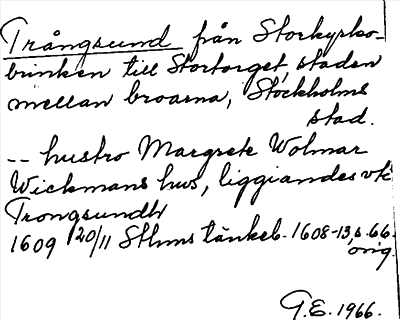 Trångsund från Storkyrko-
brinken till Stortorget, staden
mellan broarna, Stockholms
stad.
-- hustro Margrete Wolmar
Wickmans hus, liggiandes vtj
Trongsundh
1609 20/11 Sthms tänkeb. 1608-13, s. 66
orig.
G.E. 1966.